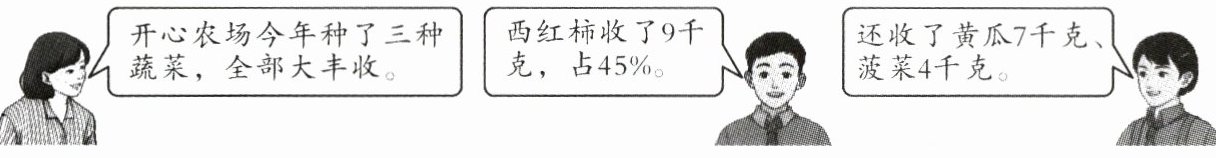 开心农场今年种了三种
蔬菜，全部大丰收。
西红柿收了9千
克，占45%。
还收了黄瓜7千克、
菠菜4千克。